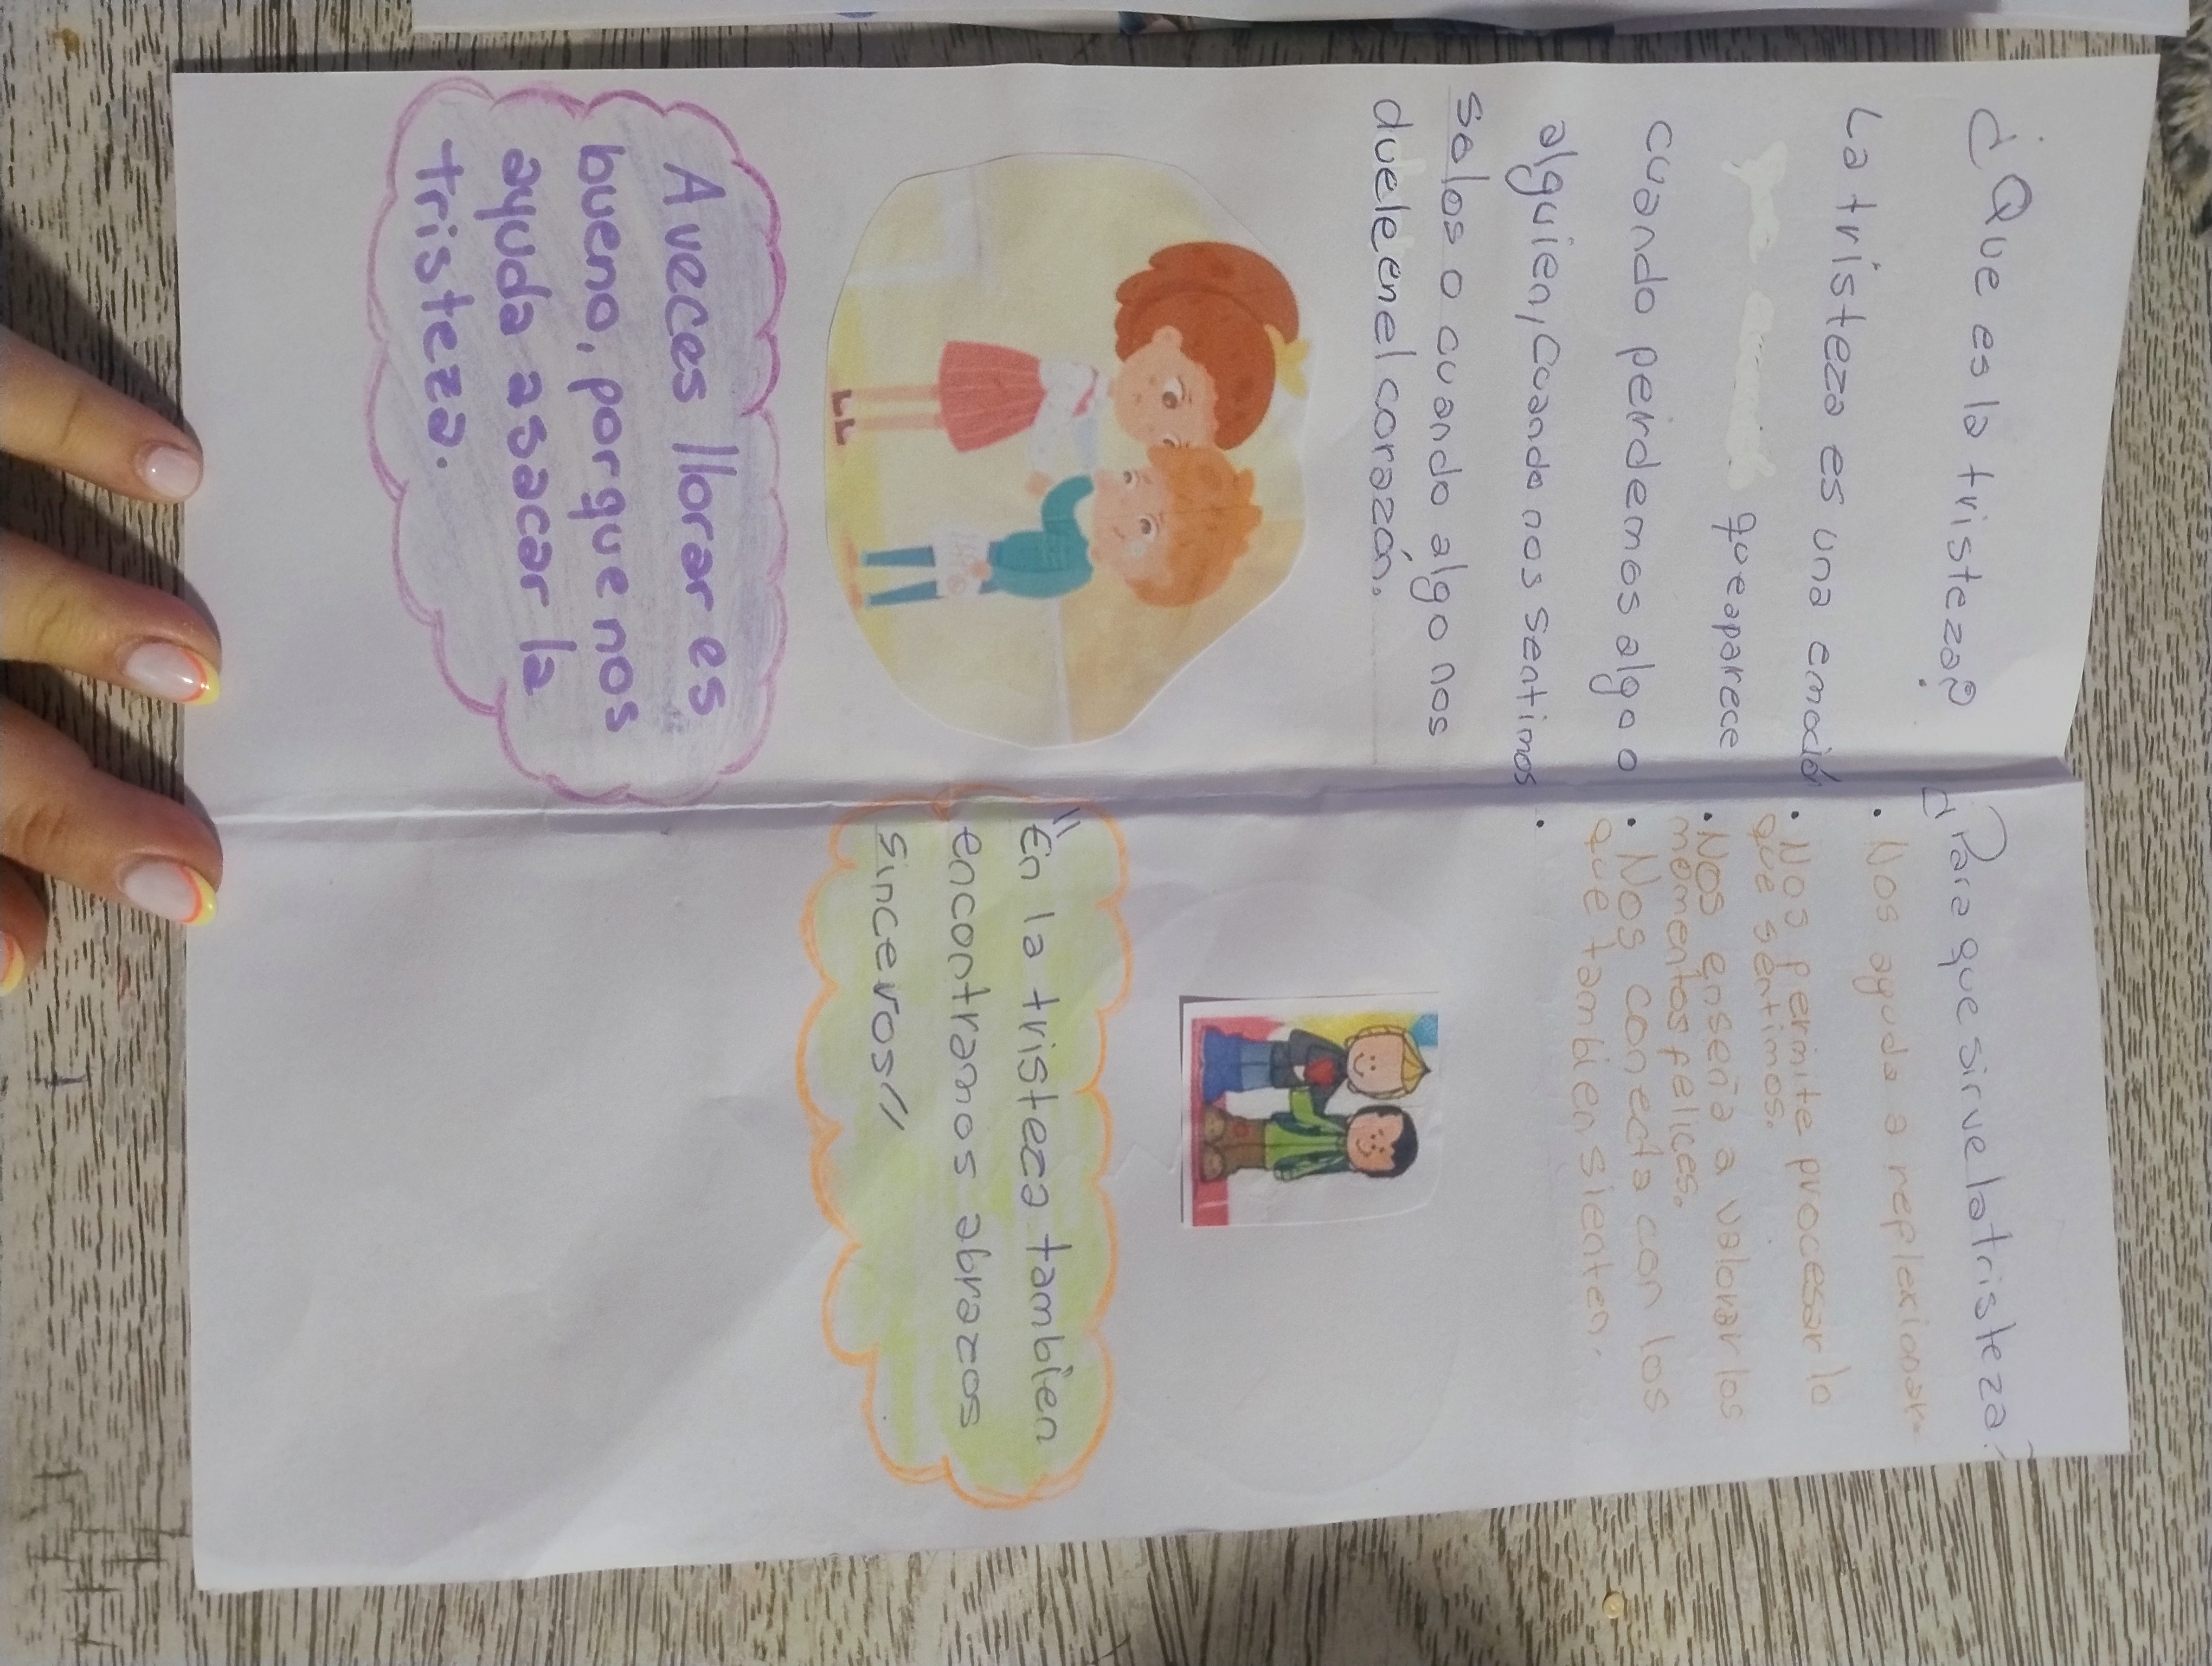 ¿Que es la tristeza?
La tristeza es una emoción
que aparece
cuando peirdemos algo o
alguien, Cuando nos sentimos
solos o cuando algo nos
duele en el corazón.
A veces llorar es
bueno, porque nos
ayuda a sacar la
tristeza.
¿Para que sirve la tristeza?
• Nos ayuda a replexionar
• Nos permite procesar lo
que sentimos.
• Nos enseña a valorar los
momentos felices.
• Nos conecta con los
que tambien sienten.
•
"En la tristeza tambien
encontramos abrazos
sinceros"